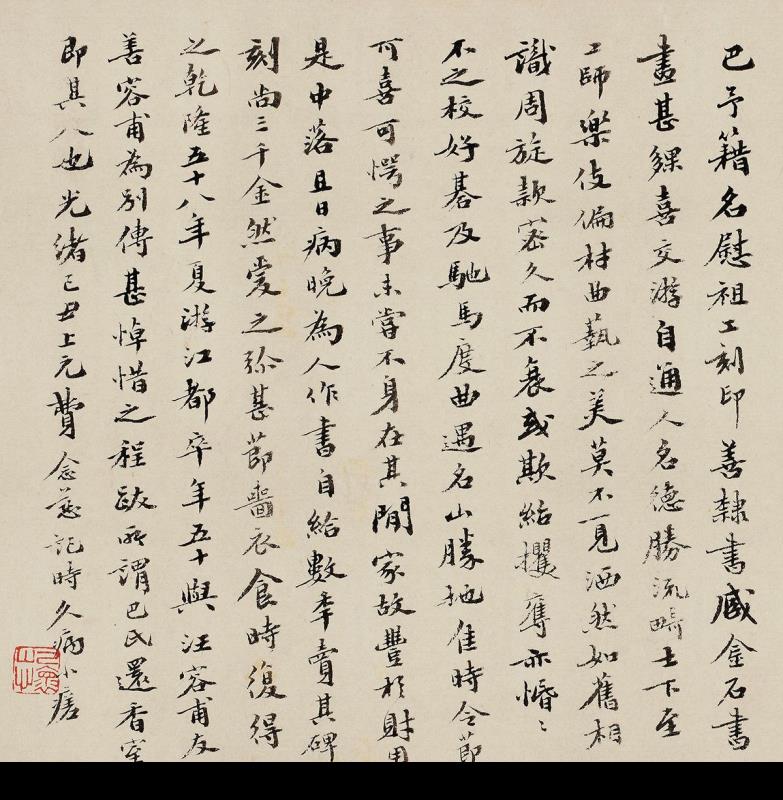 巴予籍名慰祖工刻印善隸書臧金石書
畫甚夥喜交游自通人名德勝流畸士下至
工師樂伎偏材曲藝之美莫不一見洒然如舊相
識周旋款密久而不衰或欺紿攫奪亦惛〻
不之校好碁及馳馬度曲遇名山勝地佳時令節
可喜可愕之事未嘗不身在其閒家故豐於財用
是中落且日病晚為人作書自給數年賣其碑
刻尚三千金然愛之弥甚節嗇衣食時復得
之乾隆五十八年夏游江都卒年五十與汪容甫友
善容甫為別傳甚悼惜之程跋所謂巴氏還香室
即其人也光緒己丑上元費念慈記時久病小瘥